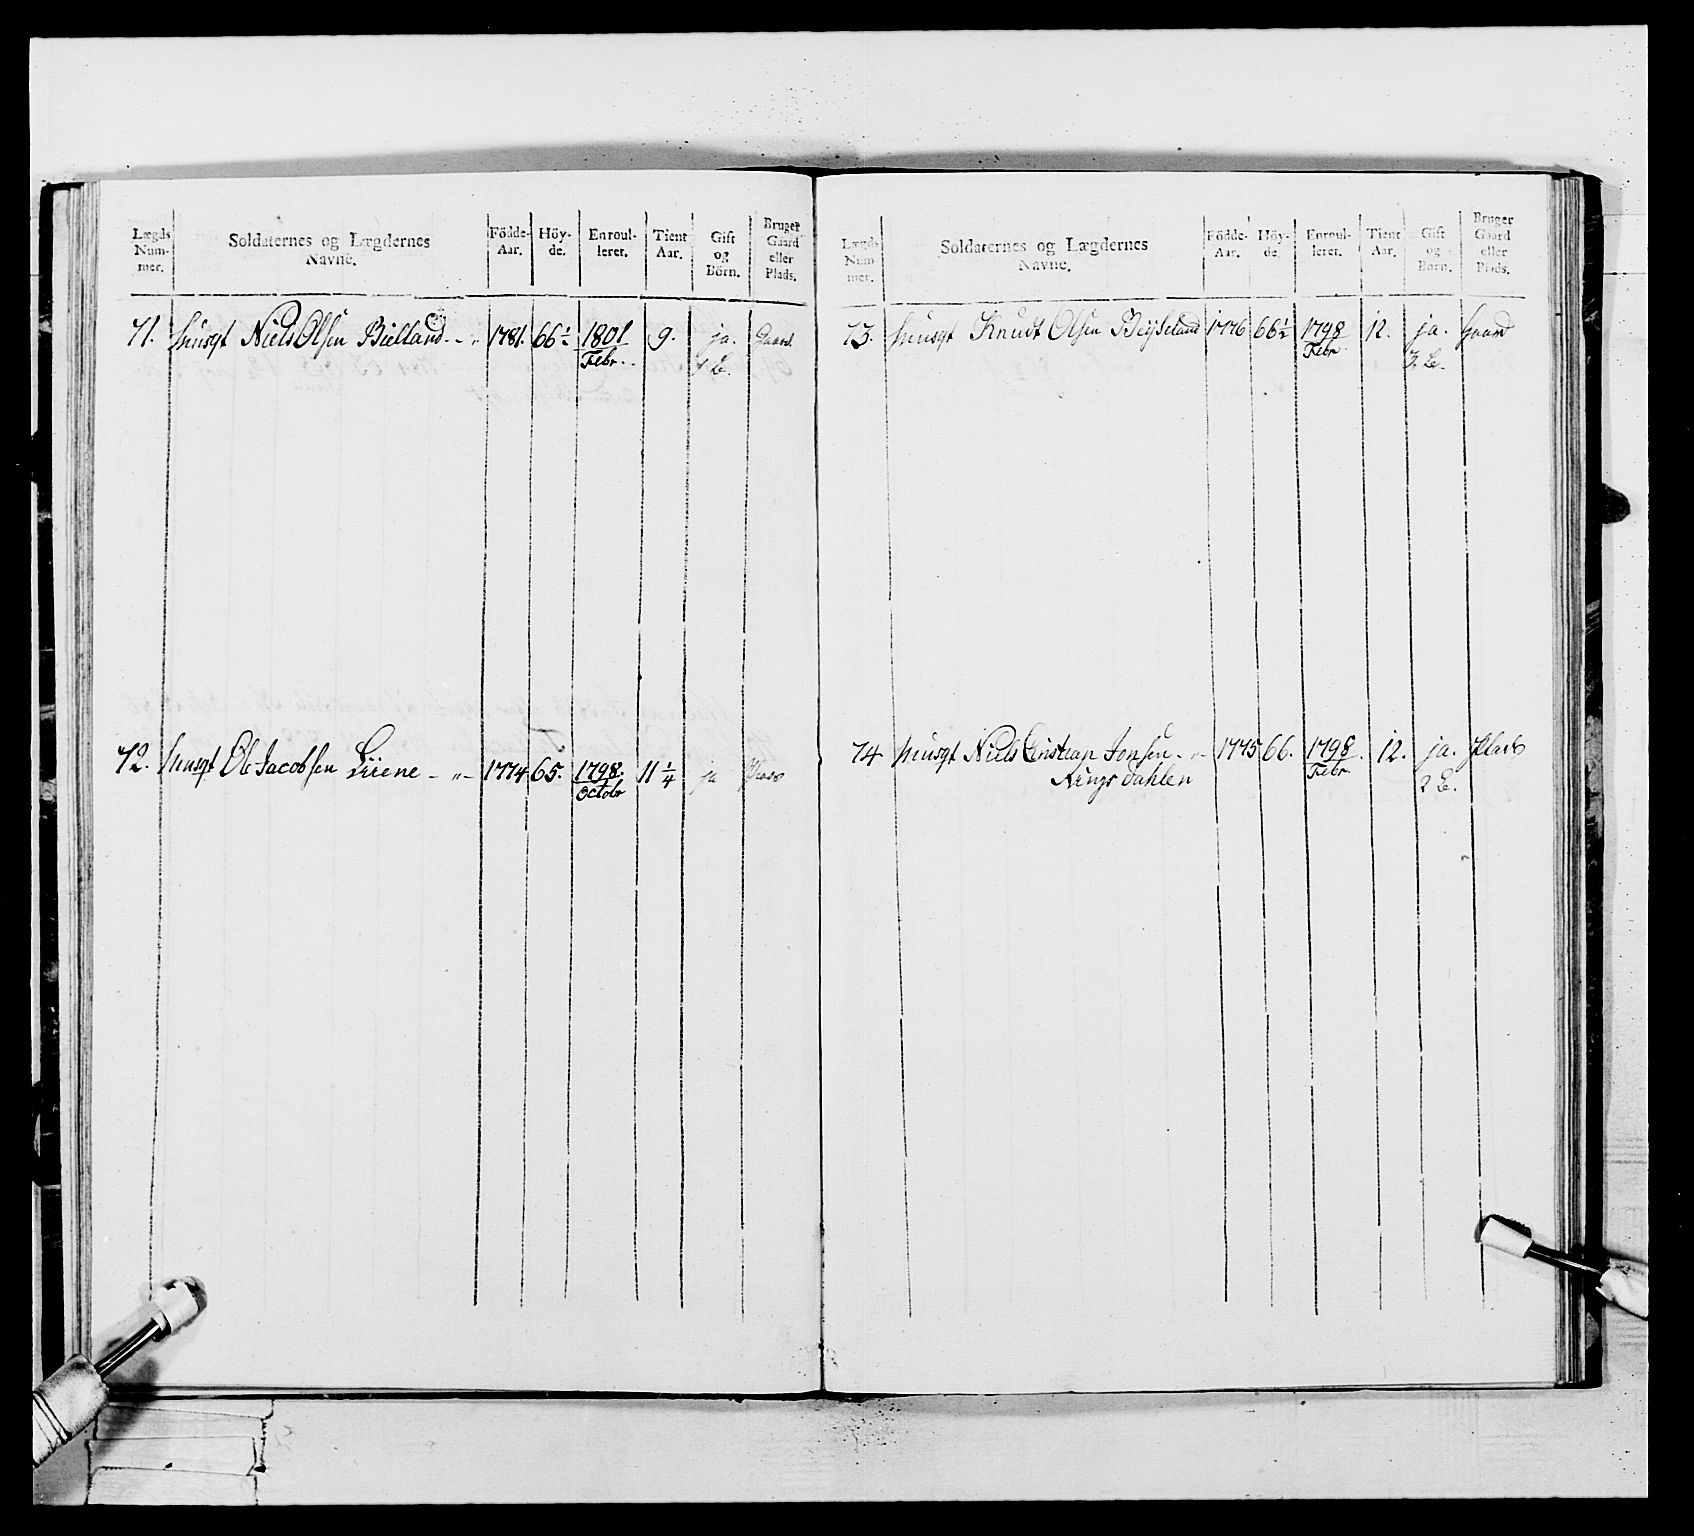 Lægds Num- mer. Soldaternes og Lægdernes Navne. Födde- Aar. Höy- de. Enroul- leret. Tient Aar. Gift og Börn. Bruger Gaard eller Plads.
71. Musqt Niels Olsen Bielland - „ - 1781. 66 ½ 1801 9. ja. Gaard
Febr. 1 B.
72. Musqt Ole Jacobsen Liiene - „ - 1774 65. 1798. 11 ¼ ja Plads
Octobr
Lægds Num- mer. Soldaternes og Lægdernes Navne. Födde- Aar. Höy- de. Enroul- leret. Tient Aar. Gift og Börn. Bruger Gaard eller Plads.
73. Musqt Knudt Olsen 1776 66 ½ 1798 12. ja. Gaard
Febr. B.
74 Musqt Niels Jonsen - „ - 1775 66. 1798. 12. ja. Plads
Ringsdahlen Febr. 2 B.